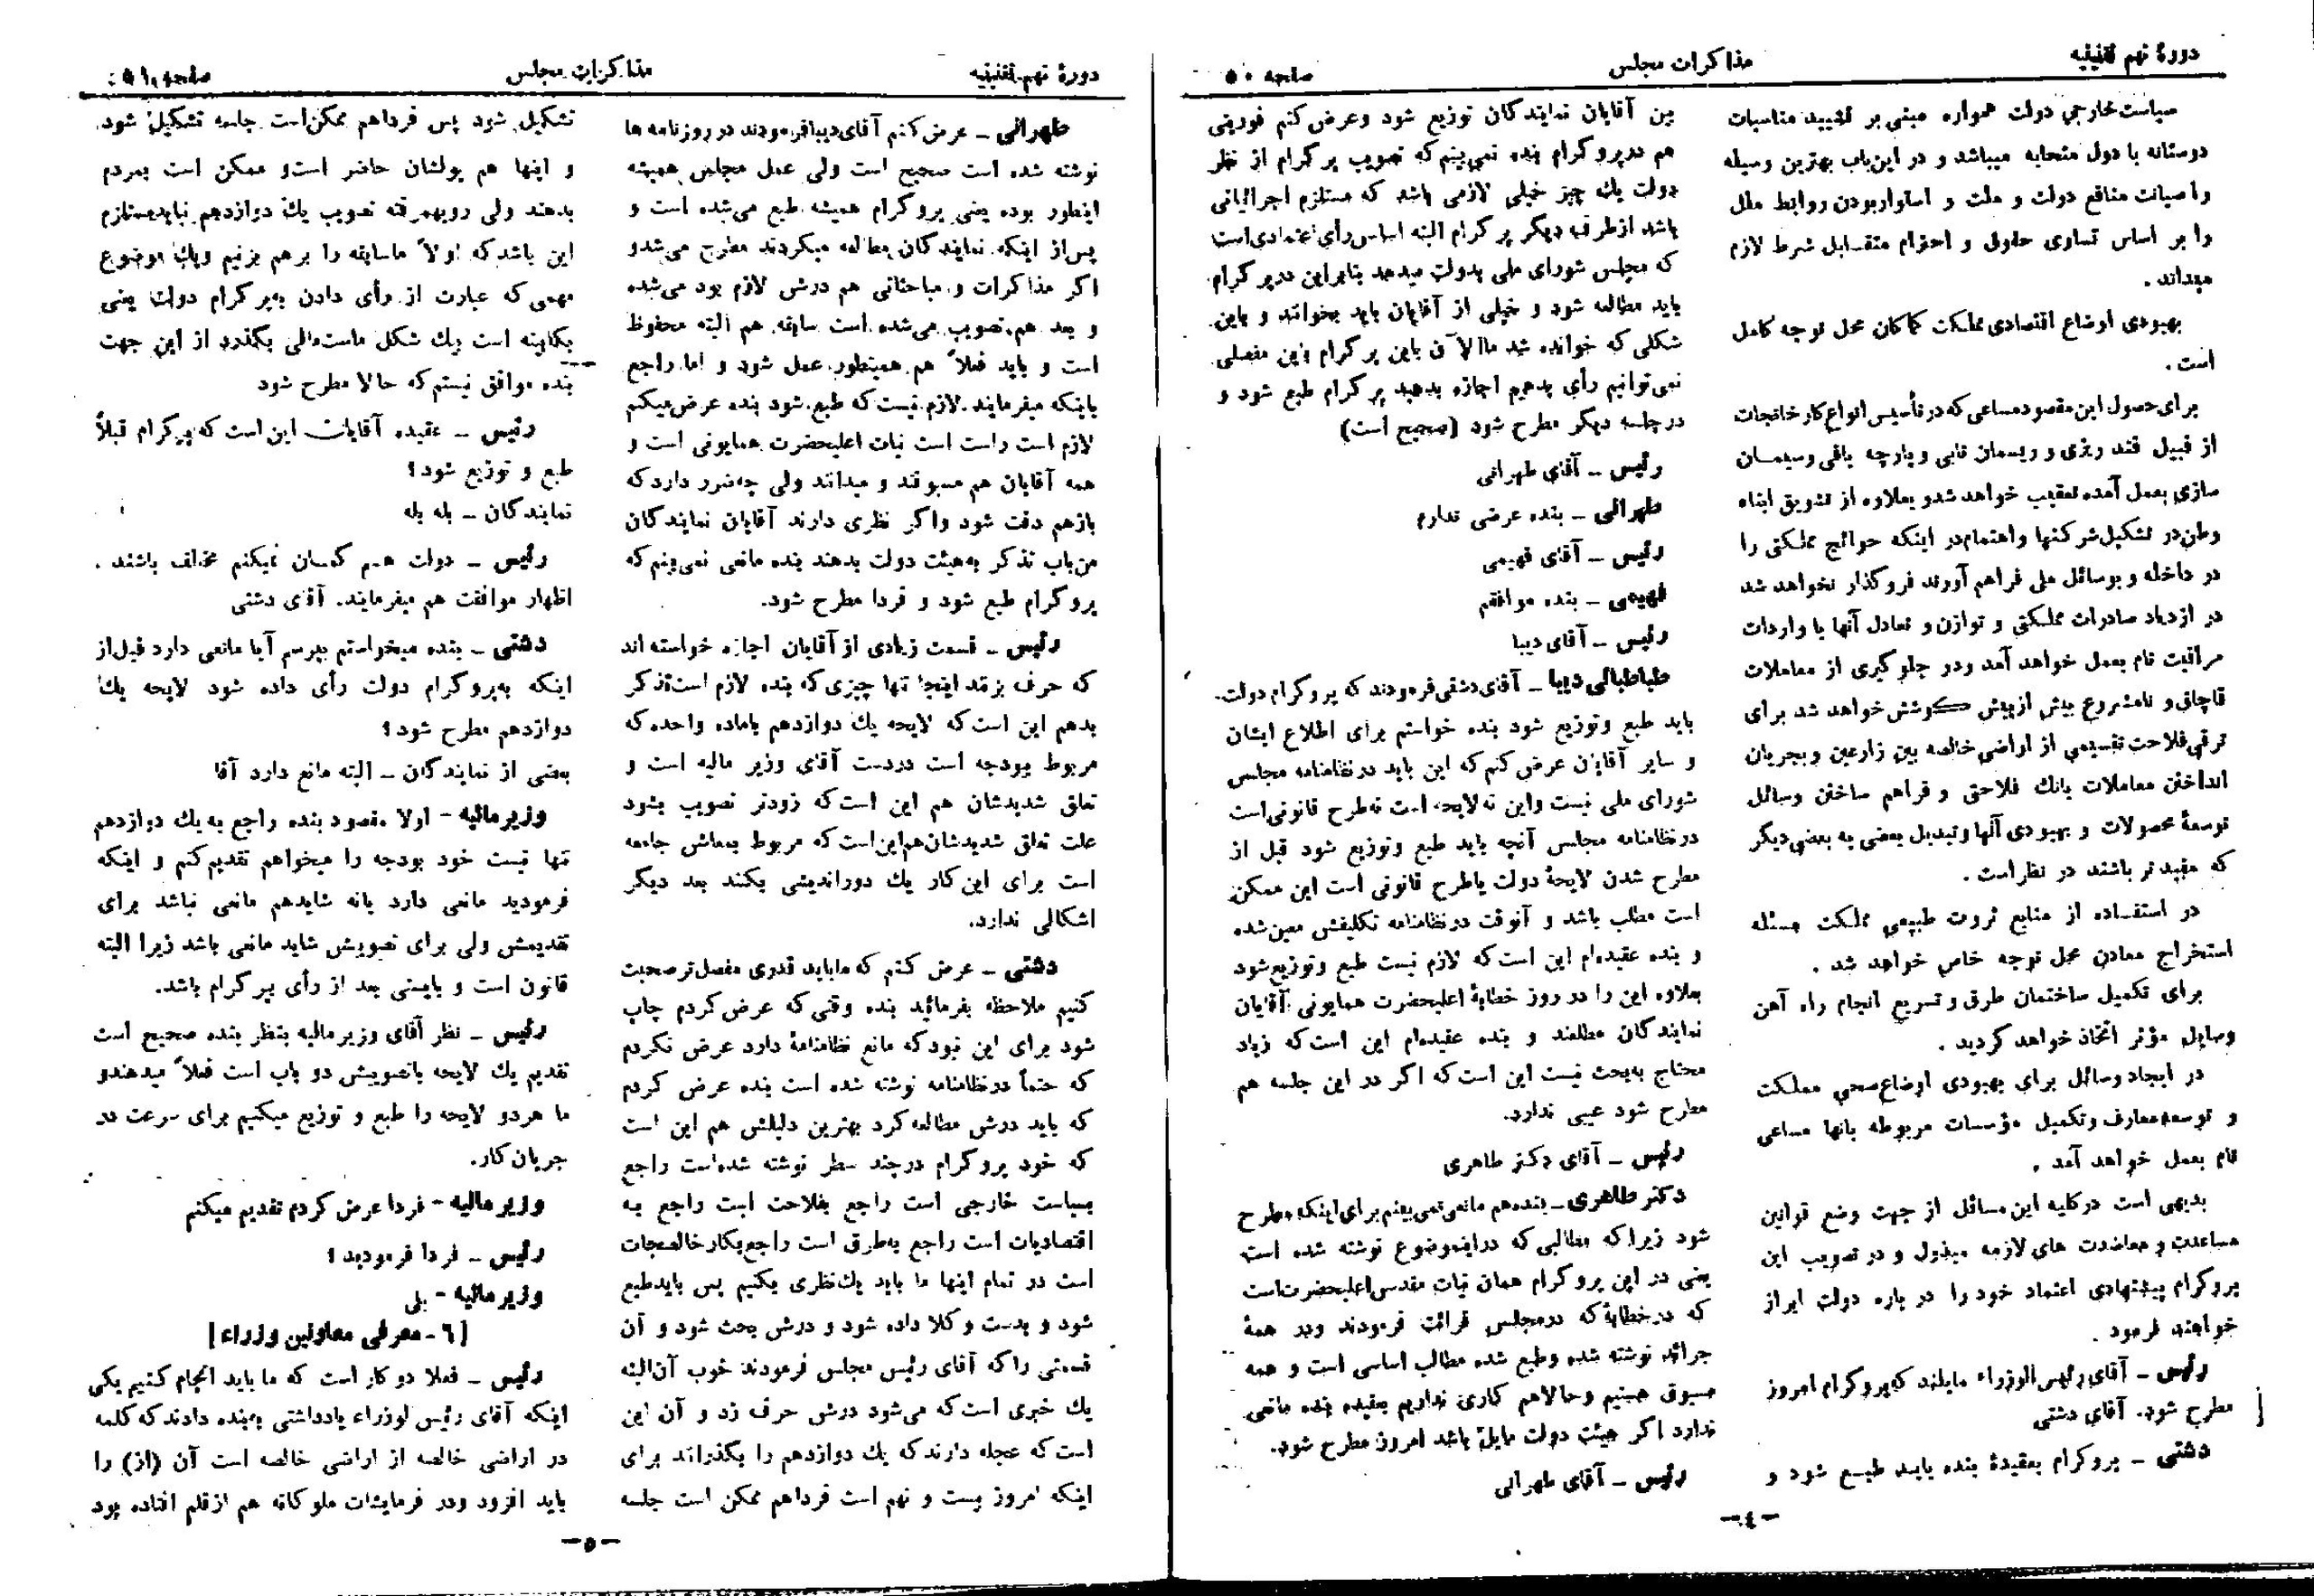 دورهٔ نهم تقنینیه
مذاکرات مجلس
صفحه ۵۰
سیاست خارجی دولت همواره مبنی بر تشیید مناسبات
دوستانه با دول متحابه میباشد و در این باب بهترین وسیله
را صیانت منافع دولت و ملت و استواربودن روابط ملل
را بر اساس تساوی حقوق و احترام متقابل شرط لازم
میداند .
بهبودی اوضاع اقتصادی مملکت کماکان محل توجه کامل
است .
برای حصول این مقصود مساعی که در تأسیس انواع کارخانجات
از قبیل قند ریزی و ریسمان تابی و پارچه بافی و سیمان
سازی بعمل آمده تعقیب خواهد شد و بعلاوه از تشویق ابناء
وطن در تشکیل شرکتها و اهتمام در اینکه حوائج مملکتی را
در داخله و بوسائل ملی فراهم آورند فروگذار نخواهد شد
در ازدیاد صادرات مملکتی و توازن و تعادل آنها با واردات
مراقبت تام بعمل خواهد آمد و در جلوگیری از معاملات
قاچاق و نامشروع بیش از پیش کوشش خواهد شد برای
ترقی فلاحت تقسیمی از اراضی خالصه بین زارعین و بجریان
انداختن معاملات بانك فلاحتی و فراهم ساختن وسائل
توسعهٔ محصولات و بهبودی آنها و تبدیل بعضی به بعضی دیگر
که مفیدتر باشند در نظر است .
در استفاده از منابع ثروت طبیعی مملکت مسئله
استخراج معادن محل توجه خاص خواهد شد .
برای تکمیل ساختمان طرق و تسریع انجام راه آهن
وسایل مؤثر اتخاذ خواهد گردید .
در ایجاد وسائل برای بهبودی اوضاع صحی مملکت
و توسعه معارف و تکمیل مؤسسات مربوطه بانها مساعی
تام بعمل خواهد آمد .
بدیهی است در کلیه این مسائل از جهت وضع قوانین
مساعدت و معاضدت های لازمه مبذول و در تصویب این
پروگرام پیشنهادی اعتماد خود را در باره دولت ابراز
خواهند فرمود .
رئیس ـ آقای رئیس الوزراء مایلند که پروگرام امروز
مطرح شود. آقای دشتی
دشتی ـ پروگرام بعقیدهٔ بنده باید طبع شود و
بین آقایان نمایندگان توزیع شود و عرض کنم فوریتی
هم در پروگرام بنده نمی‌بینم که تصویب پرگرام از نظر
دولت یك چیز خیلی لازمی باشد که مستلزم اجرائیاتی
باشد از طرف دیگر پرگرام البته اساس رأی اعتمادی است
که مجلس شورای ملی بدولت میدهد بنابراین در پرگرام
باید مطالعه شود و خیلی از آقایان باید بخوانند و باین
شکلی که خوانده شد ما الآن باین پرگرام باین مفصلی
نمی‌توانیم رأی بدهیم اجازه بدهید پرگرام طبع شود و
در جلسه دیگر مطرح شود (صحیح است)
رئیس ـ آقای طهرانی
طهرانی ـ بنده عرضی ندارم
رئیس ـ آقای فهیمی
فهیمی ـ بنده موافقم
رئیس ـ آقای دیبا
طباطبائی دیبا ـ آقای دشتی فرمودند که پروگرام دولت
باید طبع و توزیع شود بنده خواستم برای اطلاع ایشان
و سایر آقایان عرض کنم که این باید در نظامنامه مجلس
شورای ملی نیست و این نه لایحه است نه طرح قانونی است
در نظامنامه مجلس آنچه باید طبع و توزیع شود قبل از
مطرح شدن لایحهٔ دولت یا طرح قانونی است این ممکن
است مطلب باشد و آنوقت در نظامنامه تکلیفش معین شده
و بنده عقیده‌ام این است که لازم نیست طبع و توزیع شود
بعلاوه این را در روز خطابهٔ اعلیحضرت همایونی آقایان
نمایندگان مطلعند و بنده عقیده‌ام این است که زیاد
محتاج به‌بحث نیست این است که اگر در این جلسه هم
مطرح شود عیبی ندارد.
رئیس ـ آقای دکتر طاهری
دکتر طاهری ـ بنده هم مانعی نمی‌بینم برای اینکه مطرح
شود زیرا که مطالبی که در این موضوع نوشته شده است
یعنی در این پروگرام همان نیات مقدس اعلیحضرت است
که در خطابهٔ که در مجلس قرائت فرمودند و در همهٔ
جرائد نوشته شده و طبع شده مطالب اساسی است و همه
مسبوق هستیم و حالا هم کاری نداریم بعقیده بنده مانعی
ندارد اگر هیئت دولت مایل باشد امروز مطرح شود.
رئیس ـ آقای طهرانی
ـ٤ـ
دورهٔ نهم تقنینیه
مذاکرات مجلس
صفحه ۵۱
طهرانی ـ عرض کنم آقای دیبا فرمودند در روزنامه ها
نوشته شده است صحیح است ولی عمل مجلس همیشه
اینطور بوده یعنی پروگرام همیشه طبع می‌شده است و
پس از اینکه نمایندگان مطالعه میکردند مطرح می‌شد و
اگر مذاکرات و مباحثاتی هم درش لازم بود می‌شده
و بعد هم تصویب می‌شده است سابقه هم البته محفوظ
است و باید فعلاً هم همینطور عمل شود و اما راجع
باینکه میفرمایند لازم نیست که طبع شود بنده عرض میکنم
لازم است راست است نیات اعلیحضرت همایونی است و
همه آقایان هم مسبوقند و میدانند ولی چه ضرر دارد که
بازهم دقت شود و اگر نظری دارند آقایان نمایندگان
من باب تذکر به‌هیئت دولت بدهند بنده مانعی نمی‌بینم که
پروگرام طبع شود و فردا مطرح شود.
رئیس ـ قسمت زیادی از آقایان اجازه خواسته اند
که حرف بزنند اینجا تنها چیزی که بنده لازم است تذکر
بدهم این است که لایحه یك دوازدهم یا ماده واحده که
مربوط ببودجه است دردست آقای وزیر مالیه است و
تعلق شدیدشان هم این است که زودتر تصویب بشود
علت تعلق شدیدشان هم این است که مربوط بمعاش جامعه
است برای این کار یك دوراندیشی بکنند بعد دیگر
اشکالی ندارد.
دشتی ـ عرض کنم که ما باید قدری مفصل تر صحبت
کنیم ملاحظه بفرمائید بنده وقتی که عرض کردم چاپ
شود برای این نبود که مانع نظامنامهٔ دارد عرض نکردم
که حتماً در نظامنامه نوشته شده است بنده عرض کردم
که باید درش مطالعه کرد بهترین دلیلش هم این است
که خود پروگرام در چند سطر نوشته شده است راجع
بسیاست خارجی است راجع بفلاحت است راجع به
اقتصادیات است راجع به‌طرق است راجع بکار خالصجات
است در تمام اینها ما باید یك نظری بکنیم پس باید طبع
شود و بدست وکلا داده شود و درش بحث شود و آن
قسمتی را که آقای رئیس مجلس فرمودند خوب آن البته
یك خبری است که می‌شود درش حرف زد و آن این
است که عجله دارند که یك دوازدهم را بگذرانند برای
اینکه امروز بیست و نهم است فردا هم ممکن است جلسه
تشکیل شود پس فردا هم ممکن است جلسه تشکیل شود
و اینها هم پولشان حاضر است و ممکن است بمردم
بدهند ولی رویهمرفته تصویب یك دوازدهم نباید مستلزم
این باشد که اولاً ما سابقه را برهم بزنیم و یك موضوع
مهمی که عبارت از رأی دادن به‌پرگرام دولت یعنی
بکابینه است بیك شکل ماست‌مالی بگذرد از این جهت
بنده موافق نیستم که حالا مطرح شود
رئیس ـ عقیده آقایان این است که پرگرام قبلاً
طبع و توزیع شود؟
نمایندگان ـ بله بله
رئیس ـ دولت هم گمان نمیکنم مخالف باشند .
اظهار موافقت هم میفرمایند. آقای دشتی
دشتی ـ بنده میخواستم بپرسم آیا مانعی دارد قبل از
اینکه به‌پروگرام دولت رأی داده شود لایحه یك
دوازدهم مطرح شود؟
بعضی از نمایندگان ـ البته مانع دارد آقا
وزیر مالیه - اولا مقصود بنده راجع به یك دوازدهم
تنها نیست خود بودجه را میخواهم تقدیم کنم و اینکه
فرمودید مانعی دارد یا نه شاید هم مانعی نباشد برای
تقدیمش ولی برای تصویبش شاید مانعی باشد زیرا البته
قانون است و بایستی بعد از رأی پرگرام باشد.
رئیس ـ نظر آقای وزیر مالیه بنظر بنده صحیح است
تقدیم یك لایحه با تصویبش دو باب است فعلاً میدهند و
ما هردو لایحه را طبع و توزیع میکنیم برای سرعت در
جریان کار.
وزیر مالیه - فردا عرض کردم تقدیم میکنم
رئیس ـ فردا فرمودید؟
وزیر مالیه - بلی
[٦ ـ معرفی معاونین وزراء]
رئیس ـ فعلا دو کار است که ما باید انجام کنیم یکی
اینکه آقای رئیس لوزراء یادداشتی به‌بنده دادند که کلمه
در اراضی خالصه از اراضی خالصه است آن (از) را
باید افزود و در فرمایشات ملوکانه هم از قلم افتاده بود
ـ۵ـ